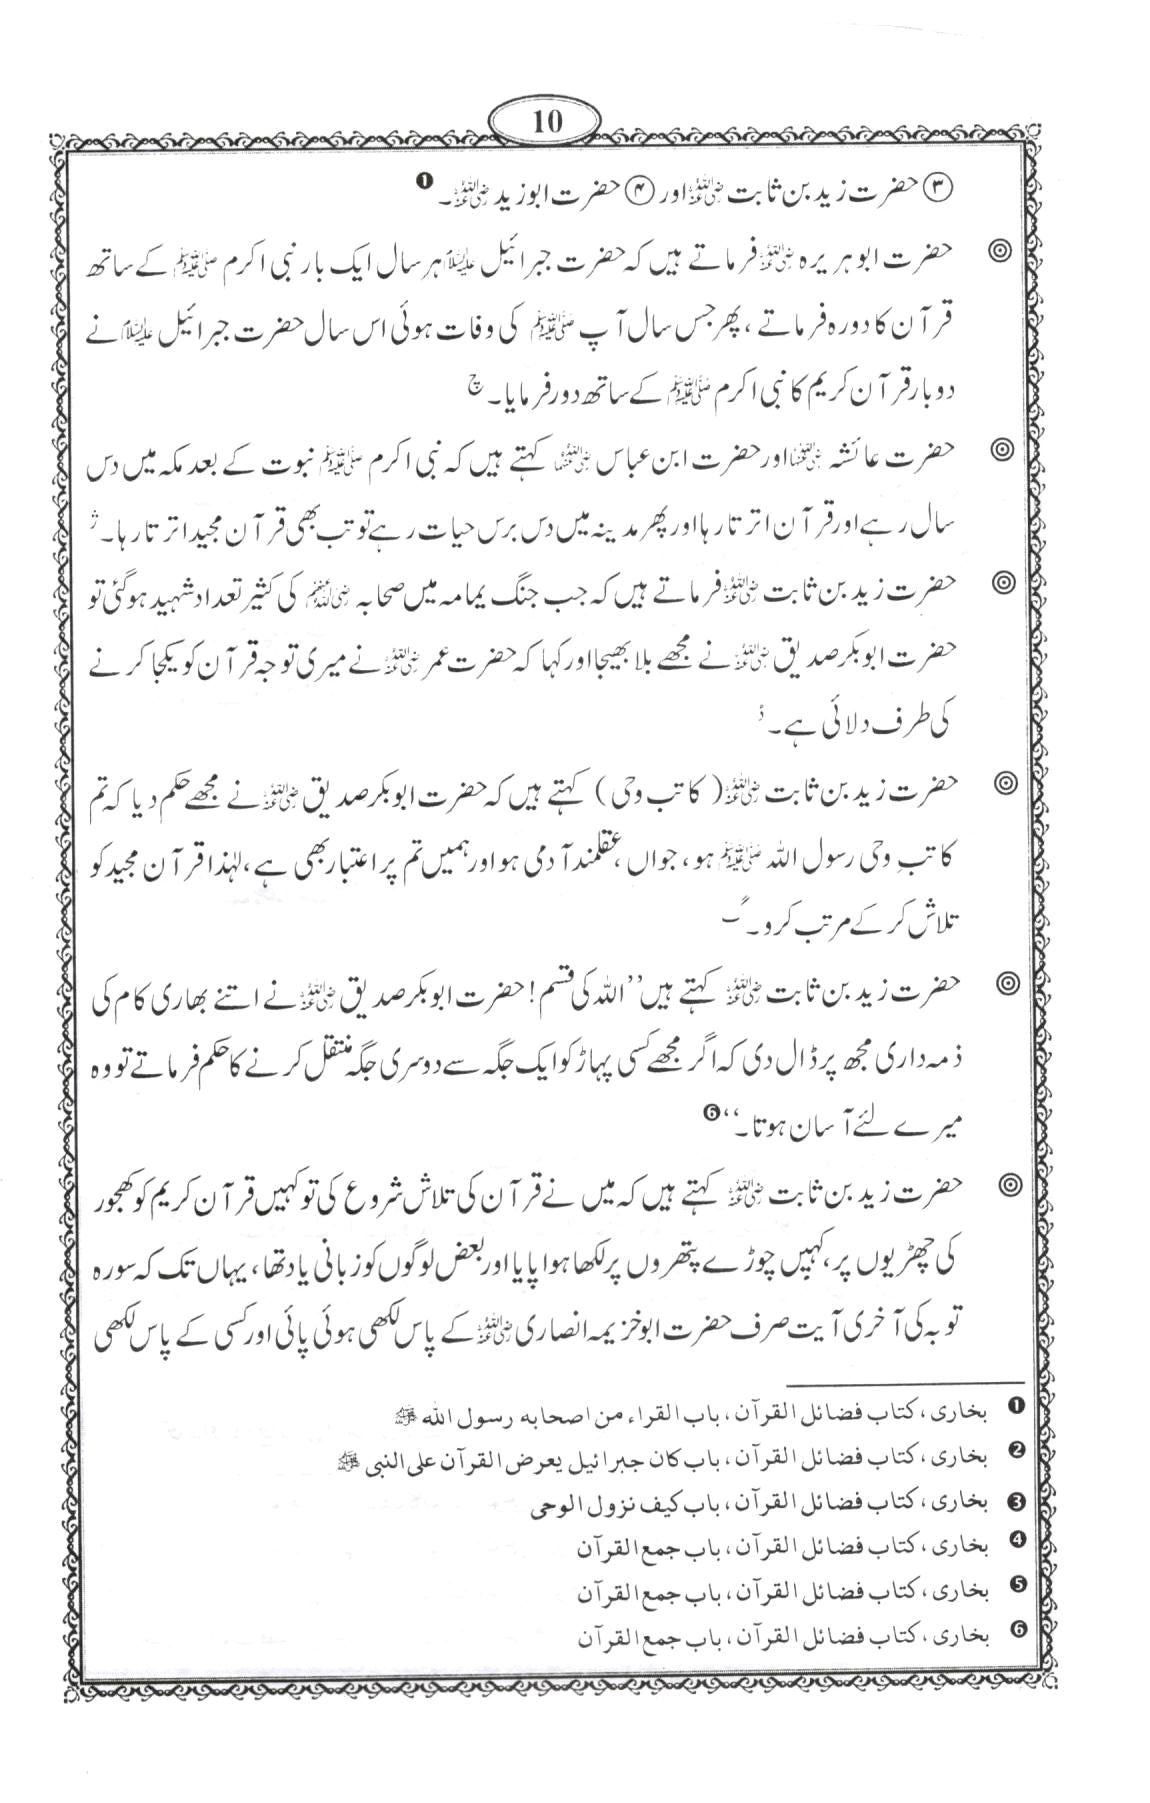 10
③ حضرت زید بن ثابت رضی اللہ عنہ اور ④ حضرت ابوزید رضی اللہ عنہ۔ ❶
◎ حضرت ابو ہریرہ رضی اللہ عنہ فرماتے ہیں کہ حضرت جبرائیل علیہ السلام ہر سال ایک بار نبی اکرم ﷺ کے ساتھ
قرآن کا دورہ فرماتے ، پھر جس سال آپ ﷺ کی وفات ہوئی اس سال حضرت جبرائیل علیہ السلام نے
دو بار قرآن کریم کا نبی اکرم ﷺ کے ساتھ دور فرمایا۔
◎ حضرت عائشہ رضی اللہ عنہا اور حضرت ابن عباس رضی اللہ عنہما کہتے ہیں کہ نبی اکرم ﷺ نبوت کے بعد مکہ میں دس
سال رہے اور قرآن اترتا رہا اور پھر مدینہ میں دس برس حیات رہے تو تب بھی قرآن مجید اترتا رہا۔
◎ حضرت زید بن ثابت رضی اللہ عنہ فرماتے ہیں کہ جب جنگ یمامہ میں صحابہ رضی اللہ عنہم کی کثیر تعداد شہید ہوگئی تو
حضرت ابوبکر صدیق رضی اللہ عنہ نے مجھے بلا بھیجا اور کہا کہ حضرت عمر رضی اللہ عنہ نے میری توجہ قرآن کو یکجا کرنے
کی طرف دلائی ہے۔
◎ حضرت زید بن ثابت رضی اللہ عنہ ( کاتب وحی ) کہتے ہیں کہ حضرت ابوبکر صدیق رضی اللہ عنہ نے مجھے حکم دیا کہ تم
کاتبِ وحی رسول اللہ ﷺ ہو ، جواں ، عقلمند آدمی ہو اور ہمیں تم پر اعتبار بھی ہے ، لہٰذا قرآن مجید کو
تلاش کر کے مرتب کرو۔
◎ حضرت زید بن ثابت رضی اللہ عنہ کہتے ہیں ’’اللہ کی قسم ! حضرت ابوبکر صدیق رضی اللہ عنہ نے اتنے بھاری کام کی
ذمہ داری مجھ پر ڈال دی کہ اگر مجھے کسی پہاڑ کو ایک جگہ سے دوسری جگہ منتقل کرنے کا حکم فرماتے تو وہ
میرے لئے آسان ہوتا۔‘‘ ❻
◎ حضرت زید بن ثابت رضی اللہ عنہ کہتے ہیں کہ میں نے قرآن کی تلاش شروع کی تو کہیں قرآن کریم کو کھجور
کی چھڑیوں پر ، کہیں چوڑے پتھروں پر لکھا ہوا پایا اور بعض لوگوں کو زبانی یاد تھا ، یہاں تک کہ سورہ
توبہ کی آخری آیت صرف حضرت ابوخزیمہ انصاری رضی اللہ عنہ کے پاس لکھی ہوئی پائی اور کسی کے پاس لکھی
❶ بخاری ، کتاب فضائل القرآن ، باب القراء من اصحابہ رسول اللہ ﷺ
❷ بخاری ، کتاب فضائل القرآن ، باب کان جبرائیل یعرض القرآن علی النبی ﷺ
❸ بخاری ، کتاب فضائل القرآن ، باب کیف نزول الوحی
❹ بخاری ، کتاب فضائل القرآن ، باب جمع القرآن
❺ بخاری ، کتاب فضائل القرآن ، باب جمع القرآن
❻ بخاری ، کتاب فضائل القرآن ، باب جمع القرآن